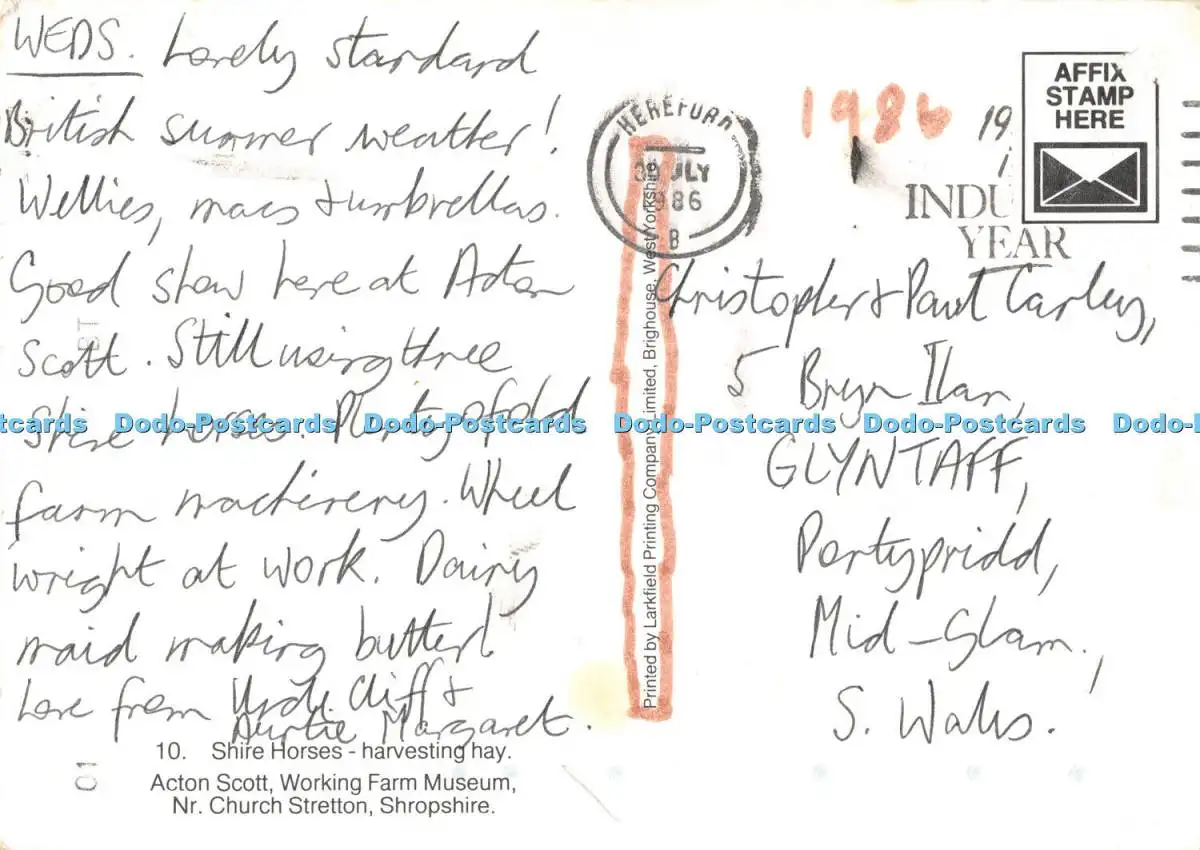 WEDS. Lovely standard
British summer weather!
Wellies, macs + umbrellas.
Good show here at Acton
Scott. Still using three
shire horses. Plenty of old
farm machinery. Wheel
wright at work. Dairy
maid making butter!
Love from Uncle Cliff +
Auntie Margaret.
10. Shire Horses - harvesting hay.
Acton Scott, Working Farm Museum,
Nr. Church Stretton, Shropshire.
Printed by Larkfield Printing Company Limited, Brighouse, West Yorkshire.
HEREFORD
JULY
1986
B
1986
19
INDU
YEAR
AFFIX
STAMP
HERE
Christopher + Paul Carley,
5 Bryn Ilan,
GLYNTAFF,
Pontypridd,
Mid-Glam.,
S. Wales.
Dodo-Postcards Dodo-Postcards Dodo-Postcards Dodo-Postcards